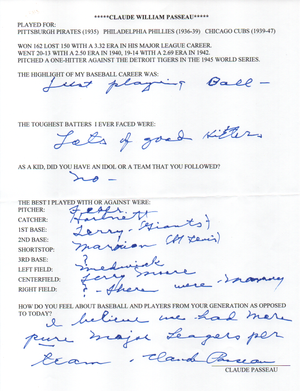 *****CLAUDE WILLIAM PASSEAU*****
PLAYED FOR:
PITTSBURGH PIRATES (1935) PHILADELPHIA PHILLIES (1936-39) CHICAGO CUBS (1939-47)
WON 162 LOST 150 WITH A 3.32 ERA IN HIS MAJOR LEAGUE CAREER.
WENT 20-13 WITH A 2.50 ERA IN 1940, 19-14 WITH A 2.69 ERA IN 1942.
PITCHED A ONE-HITTER AGAINST THE DETROIT TIGERS IN THE 1945 WORLD SERIES.
THE HIGHLIGHT OF MY BASEBALL CAREER WAS:
Just playing Ball-
THE TOUGHEST BATTERS I EVER FACED WERE:
Lots of good Hitters
AS A KID, DID YOU HAVE AN IDOL OR A TEAM THAT YOU FOLLOWED?
no-
THE BEST I PLAYED WITH OR AGAINST WERE:
PITCHER: Feller
CATCHER: Hartnett
1ST BASE: Terry (Giants)
2ND BASE:
SHORTSTOP: Marion (St Louis)
3RD BASE: ?
LEFT FIELD: Medwick
CENTERFIELD: Terry Moore
RIGHT FIELD: ? - There were - many
HOW DO YOU FEEL ABOUT BASEBALL AND PLAYERS FROM YOUR GENERATION AS OPPOSED
TO TODAY?
I believe we had more
pure Major Leagers per
team - Claude Passeau
CLAUDE PASSEAU